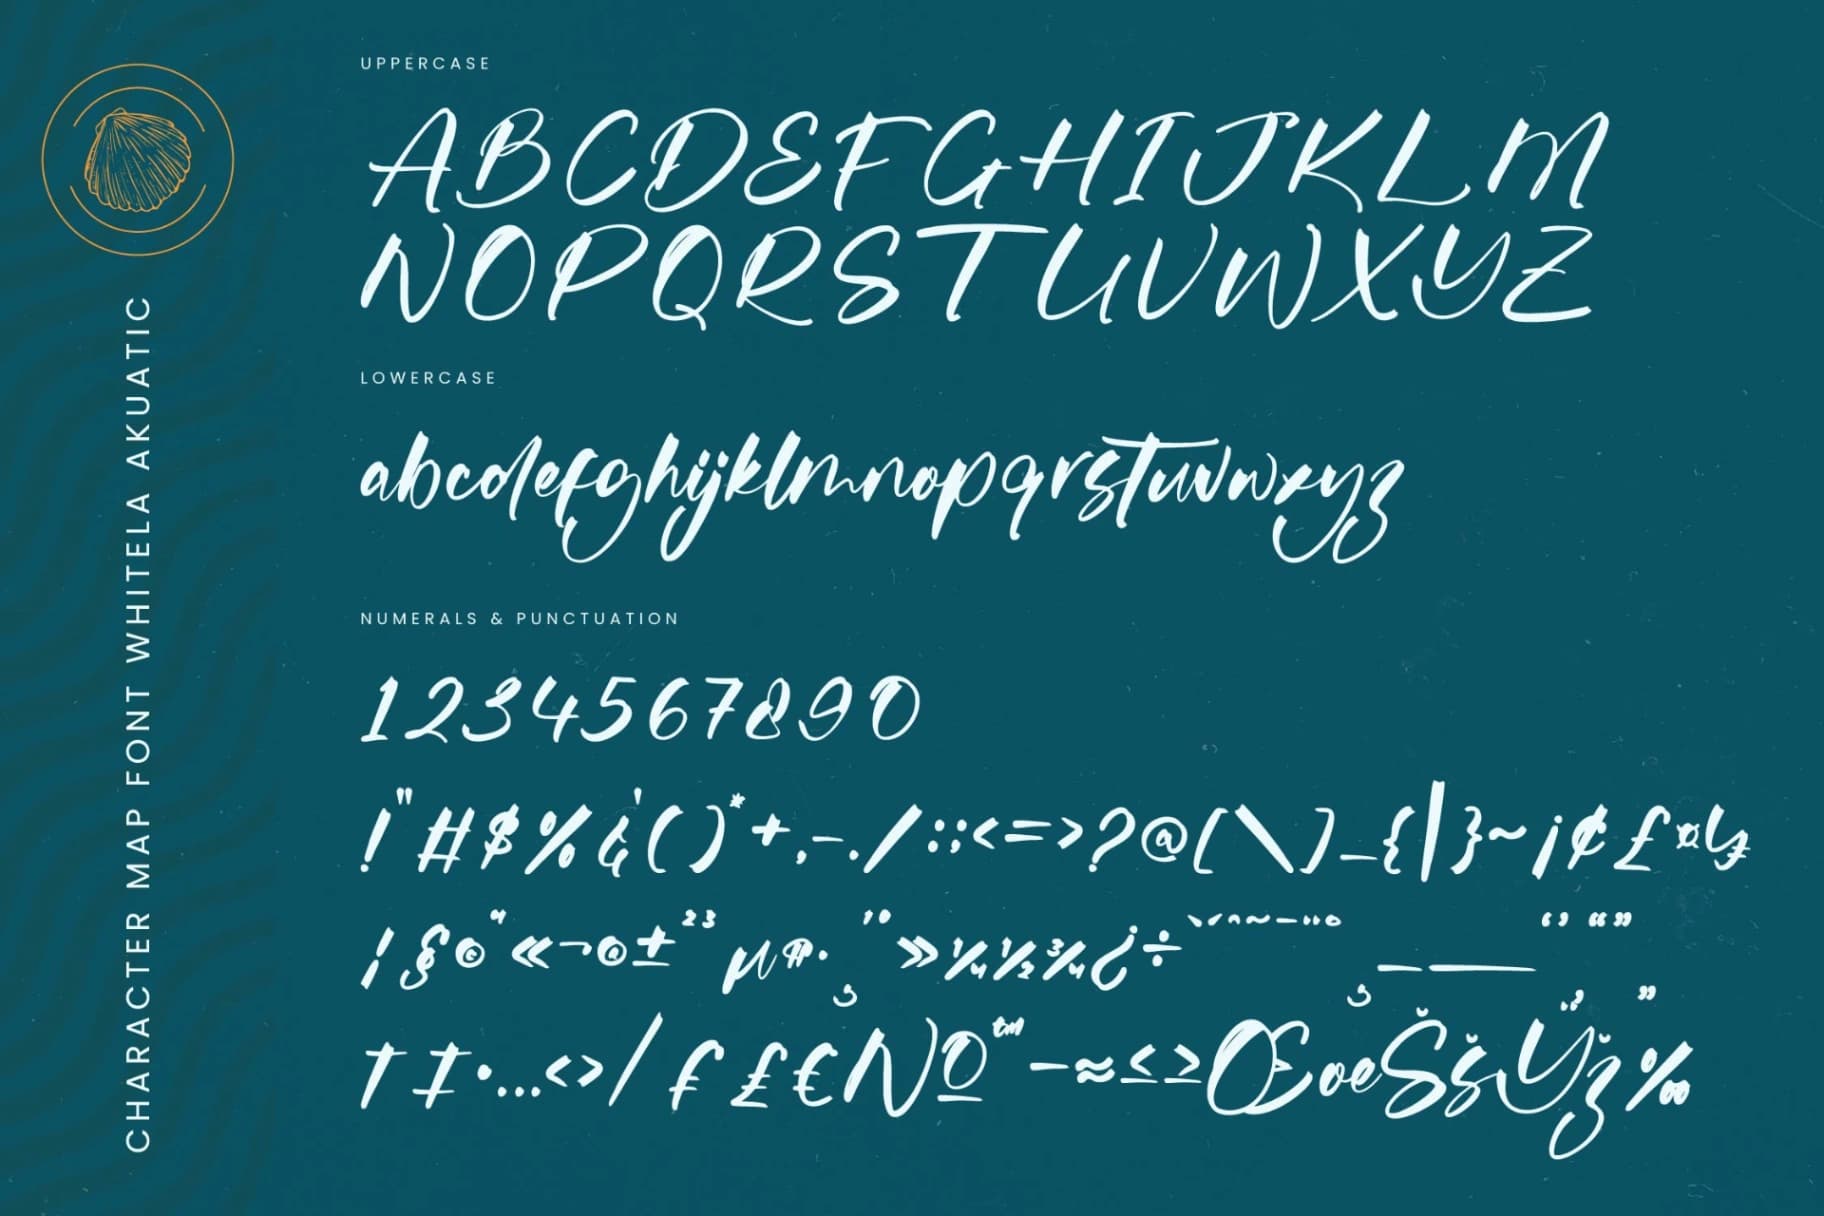 CHARACTER MAP FONT WHITELA AKUATIC
UPPERCASE
ABCDEFGHIJKLM
NOPQRSTUVWXYZ
LOWERCASE
abcdefghijklmnopqrstuvwxyz
NUMERALS & PUNCTUATION
1234567890
!"#$%&'()*+,-./:;<=>?@[\]_{|}~¡¢£¤
¦§©«¬®±²³µ¶·¸¹º»¼½¾¿÷
†‡•…‹›⁄₣₤€№™−≈≤≥ŒœŠšŸž‰